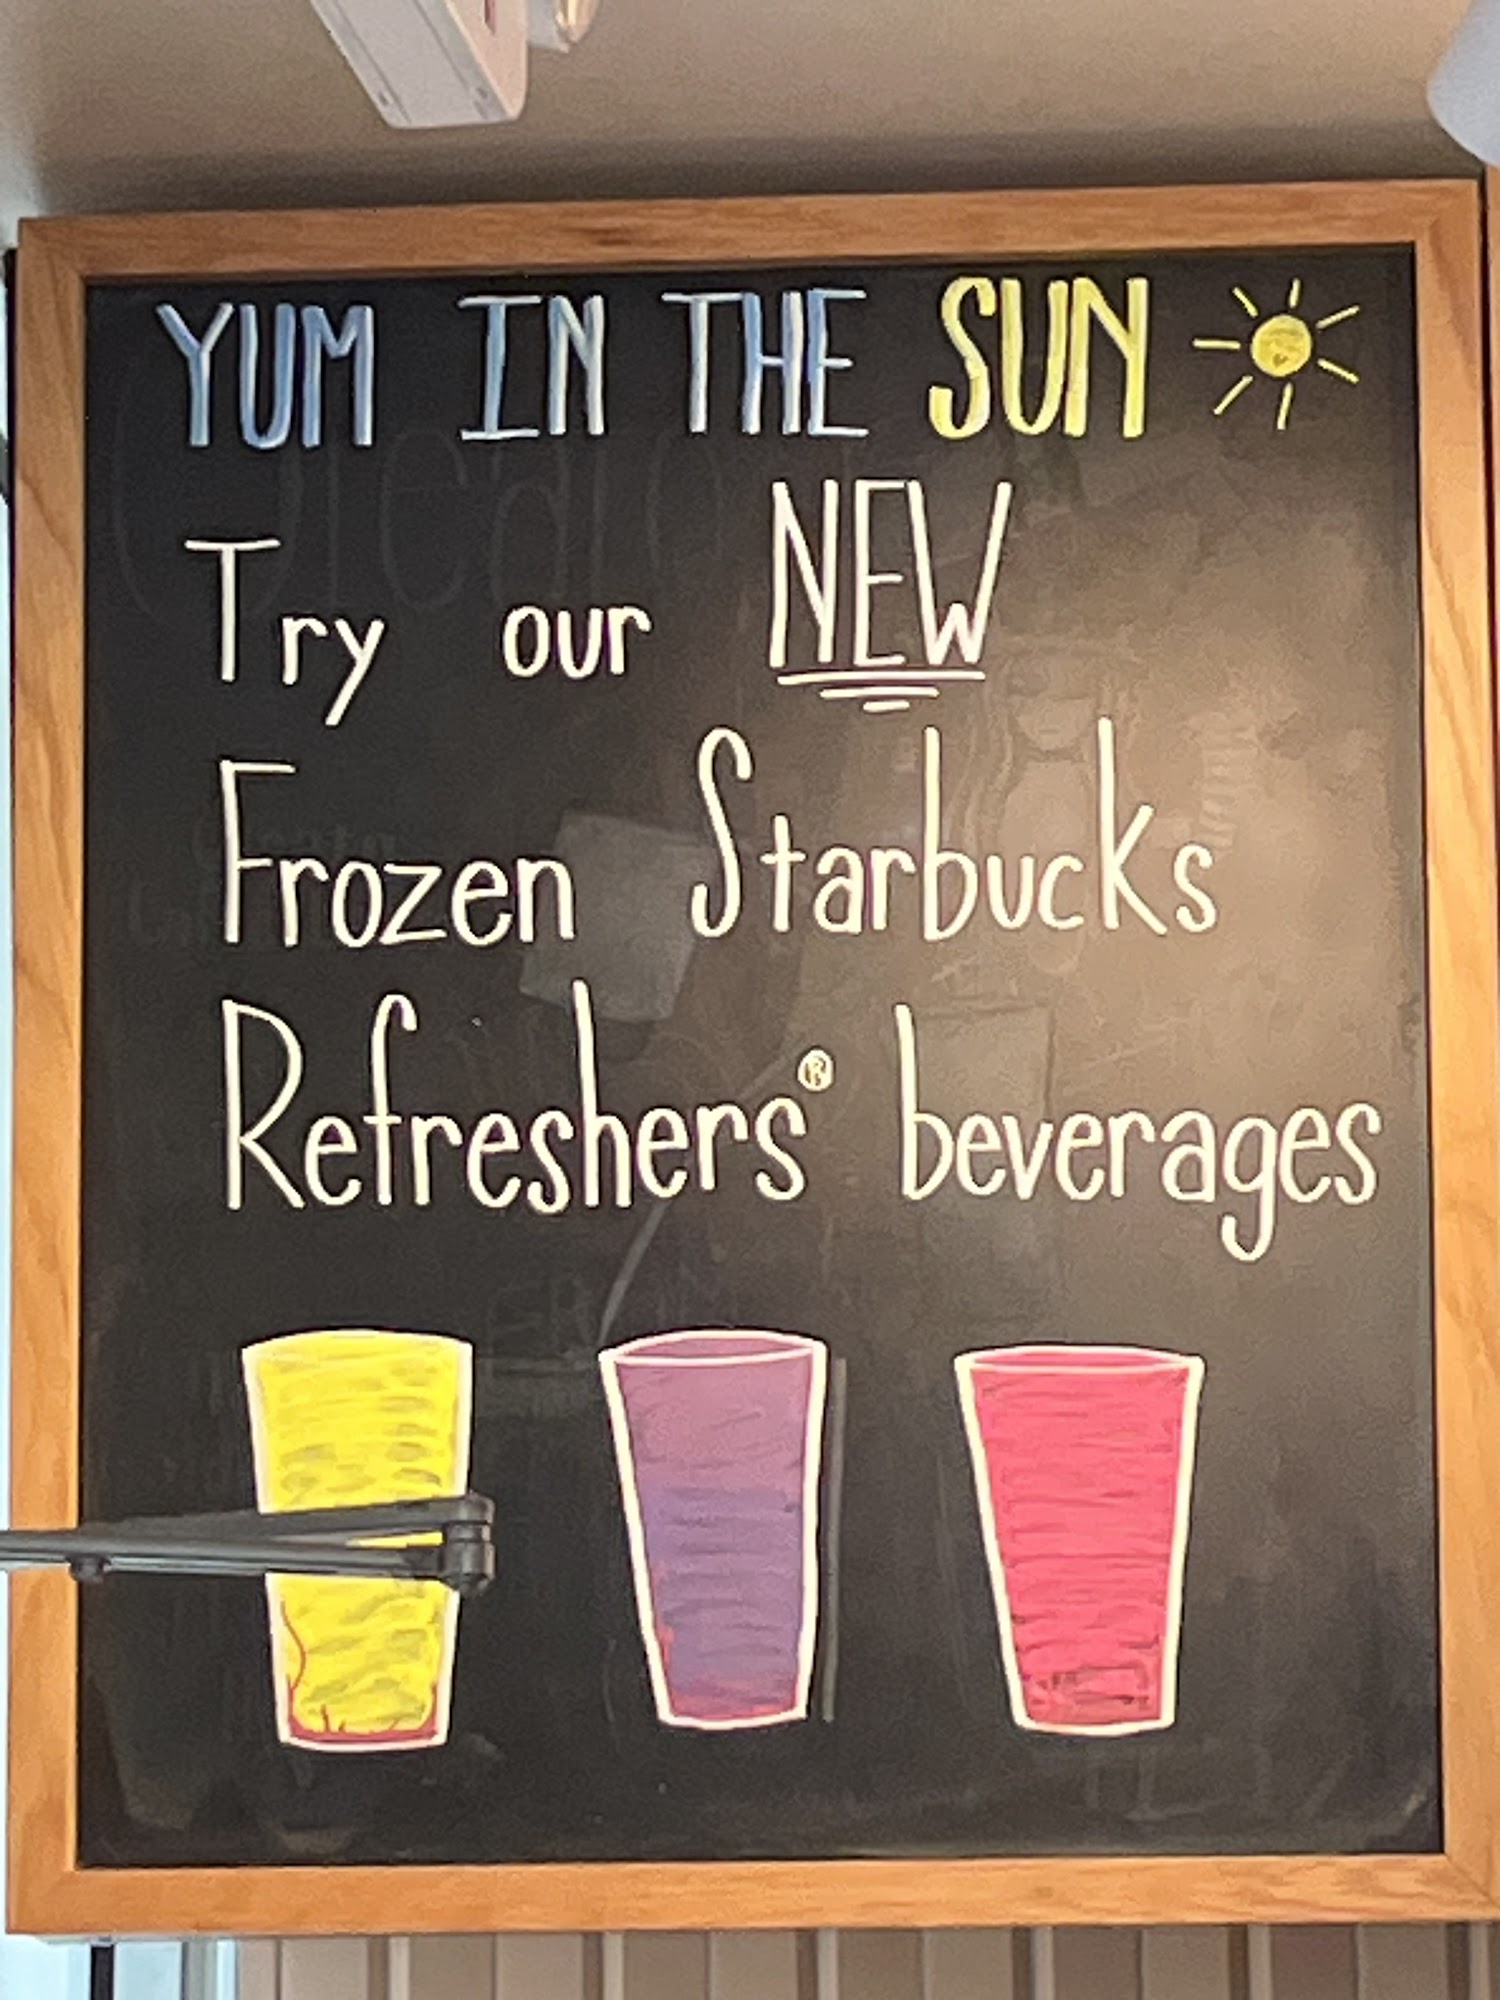 YUM IN THE SUN
Try our NEW
Frozen Starbucks
Refreshers® beverages